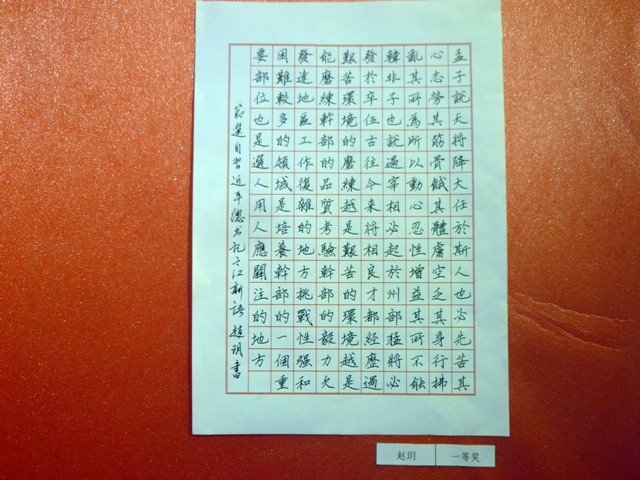 孟子說天將降大任於斯人也必先苦其
心志勞其筋骨餓其體膚空乏其身行拂
亂其所為所以動心忍性增益其所不能
韓非子也說過宰相必起於州部猛將必
發於卒伍古往今来將相良才都經歷過
艱苦環境的磨練越是艱苦的環境越是
能磨練幹部的品質考驗幹部的毅力欠
發達地區工作復雜的地方挑戰性强和
困難較多的領域是培養幹部的一個重
要部位也是選人用人應關注的地方
節選自習近平總书記之江新語 趙玥書
赵玥 一等奖